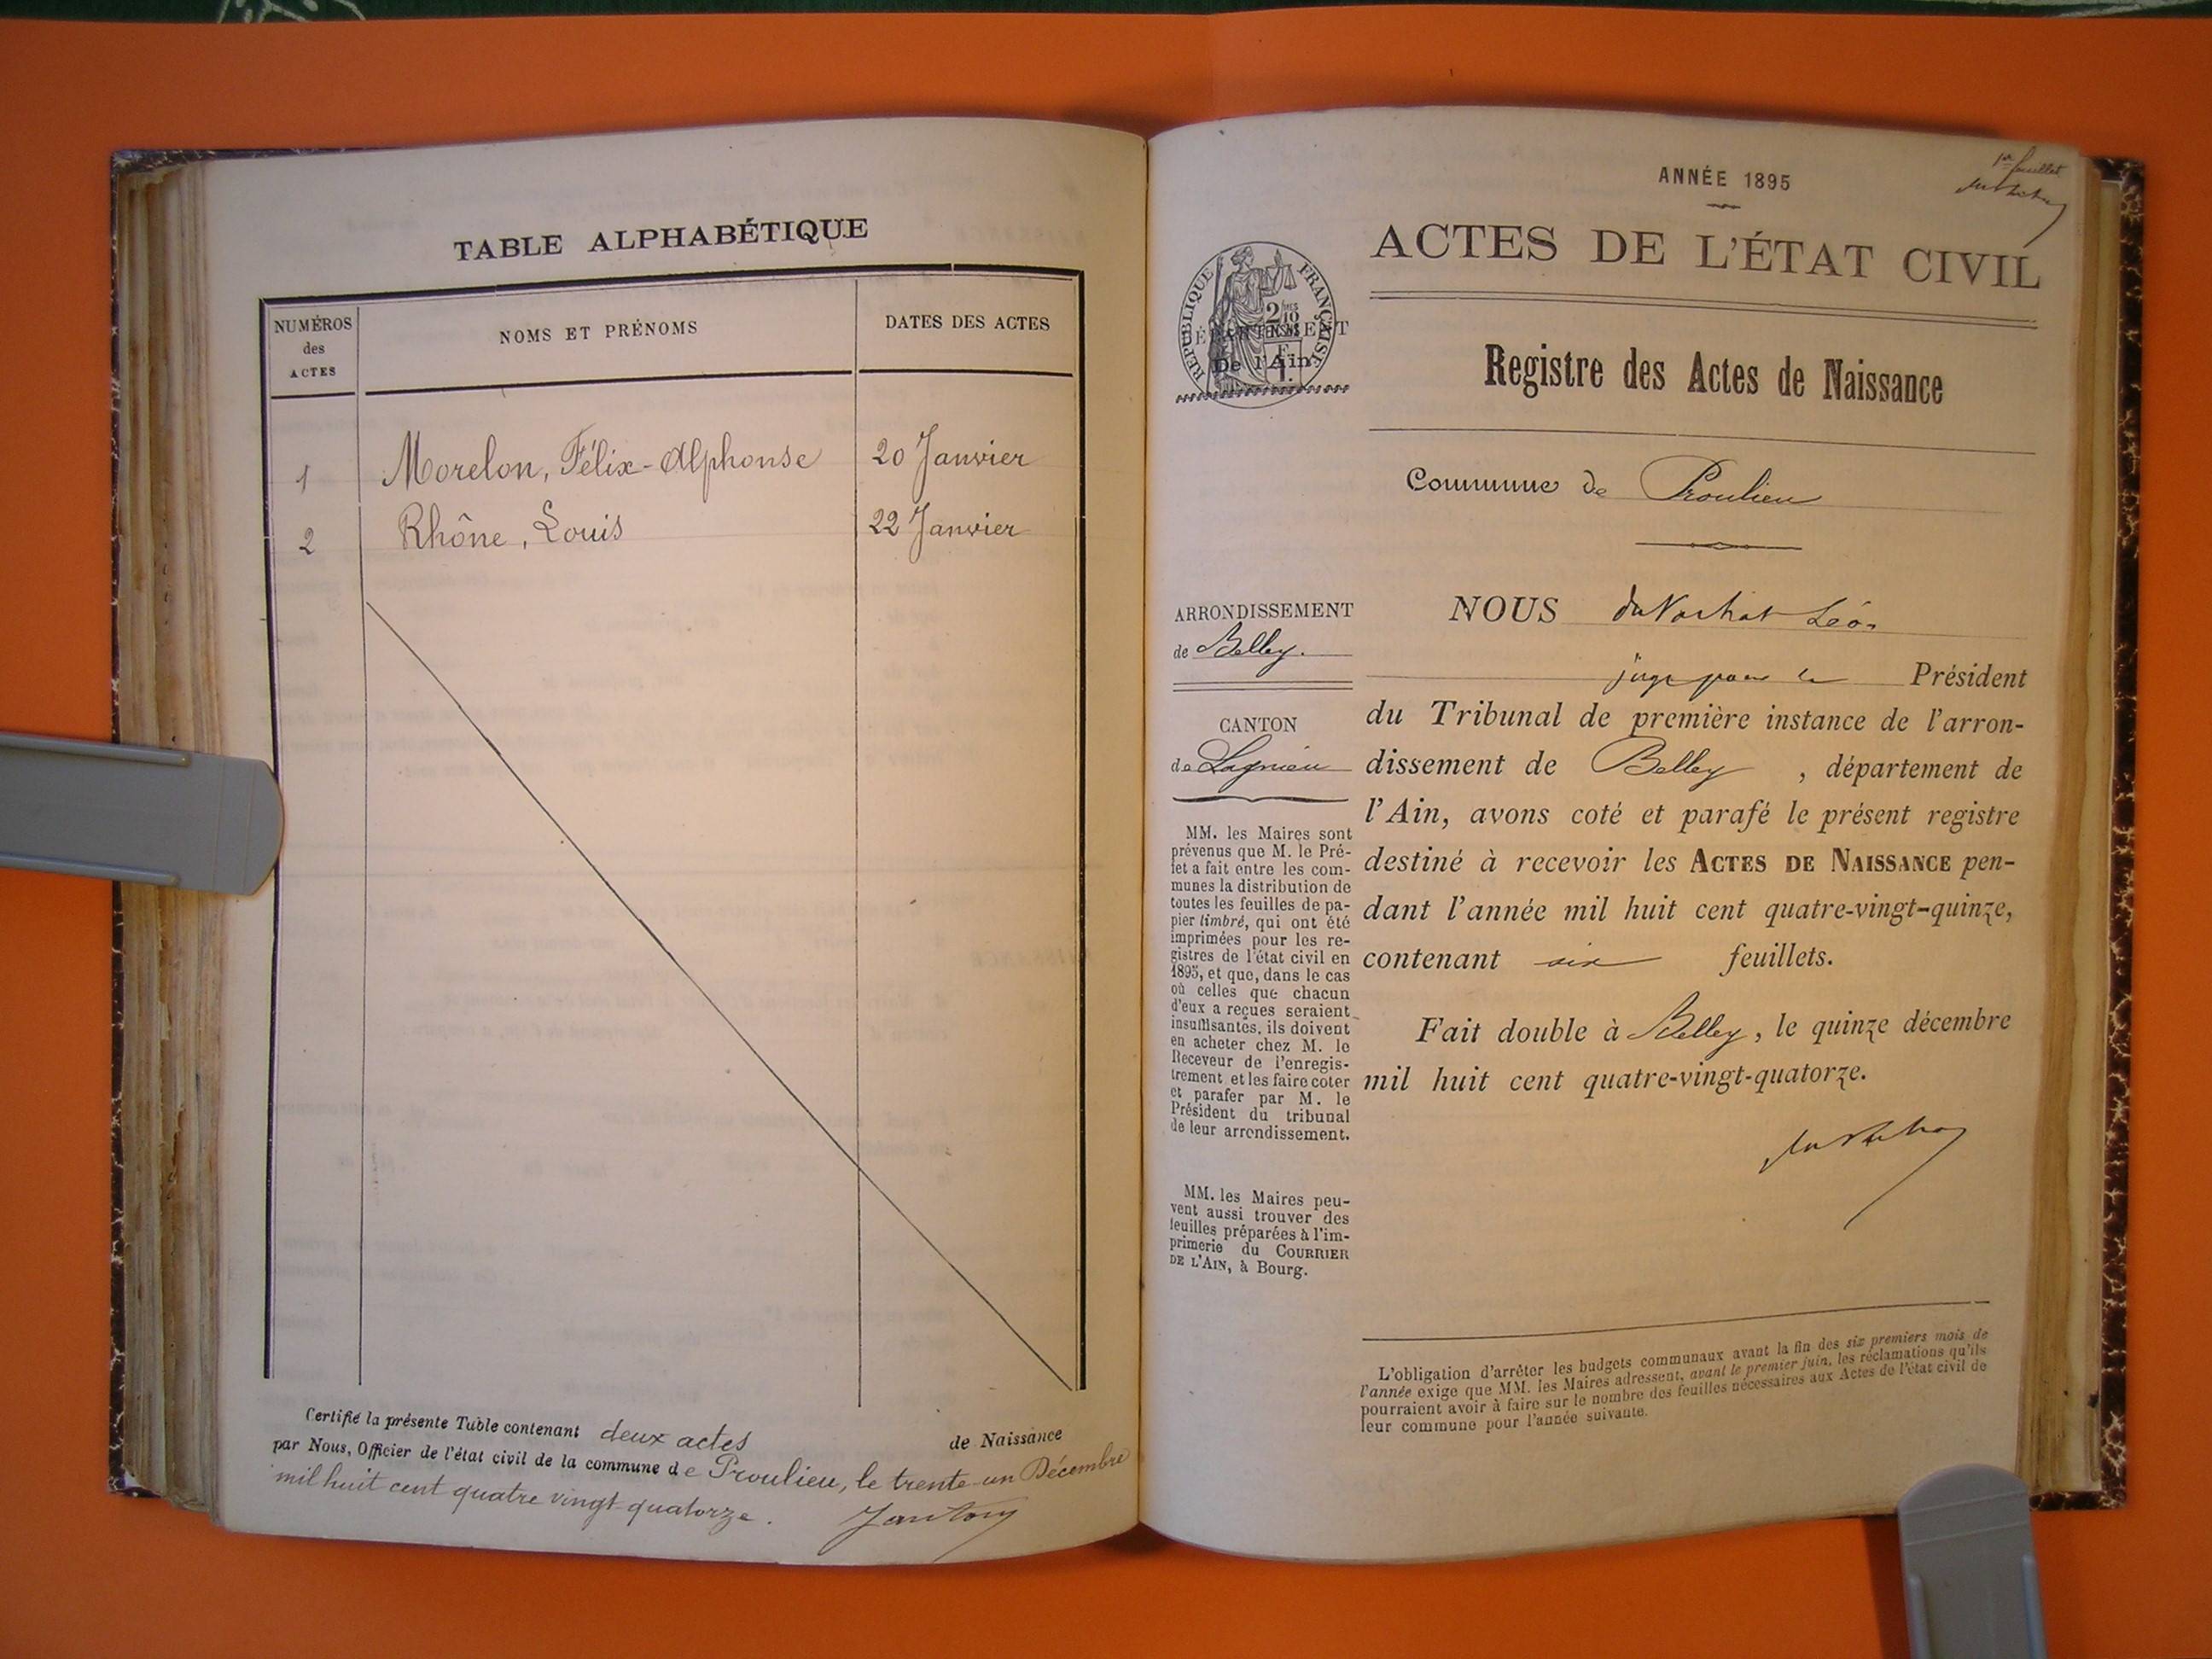 TABLE ALPHABÉTIQUE
NUMÉROS
des
ACTES
NOMS ET PRÉNOMS
DATES DES ACTES
1 Morelon, Félix-Alphonse 20 Janvier
2 Rhône, Louis 22 Janvier
Certifié la présente Table contenant deux actes de Naissance
par Nous, Officier de l'état civil de la commune de Proulieu, le trente-un Décembre
mil huit cent quatre vingt quatorze.
1er feuillet
ANNÉE 1895
ACTES DE L'ÉTAT CIVIL
RÉPUBLIQUE FRANÇAISE
De l'Ain
Registre des Actes de Naissance
Commune de Proulieu
ARRONDISSEMENT
de Belley.
CANTON
de Lagnieu
MM. les Maires sont
prévenus que M. le Pré-
fet a fait entre les com-
munes la distribution de
toutes les feuilles de pa-
pier timbré, qui ont été
imprimées pour les re-
gistres de l'état civil en
1895, et que, dans le cas
où celles que chacun
d'eux a reçues seraient
insuffisantes, ils doivent
en acheter chez M. le
Receveur de l'enregis-
trement et les faire coter
et parafer par M. le
Président du tribunal
de leur arrondissement.
MM. les Maires peu-
vent aussi trouver des
feuilles préparées à l'im-
primerie du COURRIER
DE L'AIN, à Bourg.
NOUS Léon
juge pour le Président
du Tribunal de première instance de l'arron-
dissement de Belley, département de
l'Ain, avons coté et parafé le présent registre
destiné à recevoir les ACTES DE NAISSANCE pen-
dant l'année mil huit cent quatre-vingt-quinze,
contenant six feuillets.
Fait double à Belley, le quinze décembre
mil huit cent quatre-vingt-quatorze.
L'obligation d'arrêter les budgets communaux avant la fin des six premiers mois de
l'année exige que MM. les Maires adressent, avant le premier juin, les réclamations qu'ils
pourraient avoir à faire sur le nombre des feuilles nécessaires aux Actes de l'état civil de
leur commune pour l'année suivante.